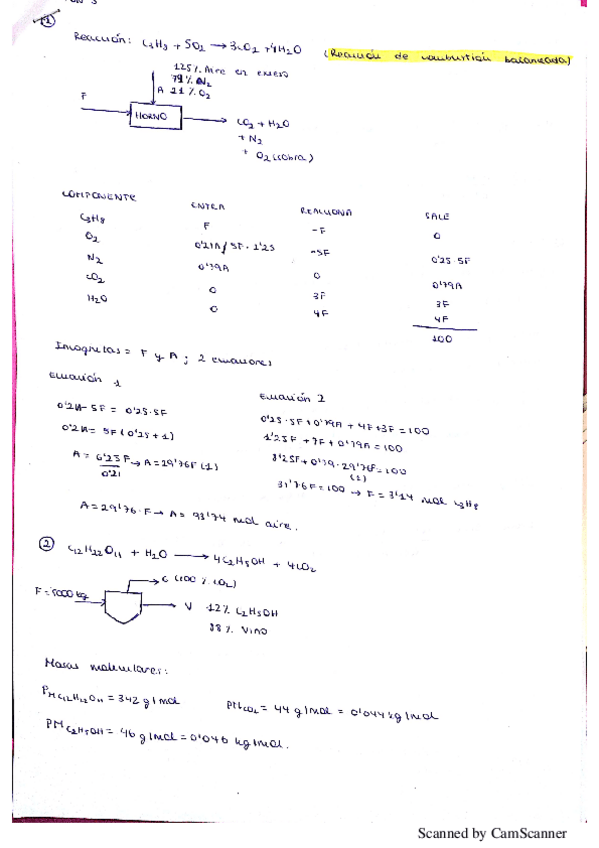 1
Reacción: C3H8 + 5O2 → 3CO2 + 4H2O (Reacción de combustión balanceada)
125% Aire en exceso
79% N2
A 21% O2
F
HORNO
CO2 + H2O
+ N2
+ O2 (sobra)
COMPONENTE ENTRA REACCIONA SALE
C3H8 F -F 0
O2 0'21A / 5F · 1'25 -5F 0'25 · 5F
N2 0'79A 0 0'79A
CO2 0 3F 3F
H2O 0 4F 4F
100
Incógnitas = F y A ; 2 ecuaciones
Ecuación 1
0'21A - 5F = 0'25 · 5F
0'21A = 5F (0'25 + 1)
A = 6'25F / 0'21 → A = 29'76F (1)
Ecuación 2
0'25 · 5F + 0'79A + 4F + 3F = 100
1'25F + 7F + 0'79A = 100
8'25F + 0'79 · 29'76F = 100
(1)
31'76F = 100 → F = 3'14 mol C3H8
A = 29'76 · F → A = 93'74 mol aire.
2
C12H22O11 + H2O → 4C2H5OH + 4CO2
C (100% CO2)
F = 5000 kg
V 12% C2H5OH
88% Vino
Masas moleculares:
PM C12H22O11 = 342 g/mol PM CO2 = 44 g/mol = 0'044 kg/mol
PM C2H5OH = 46 g/mol = 0'046 kg/mol.
Scanned by CamScanner